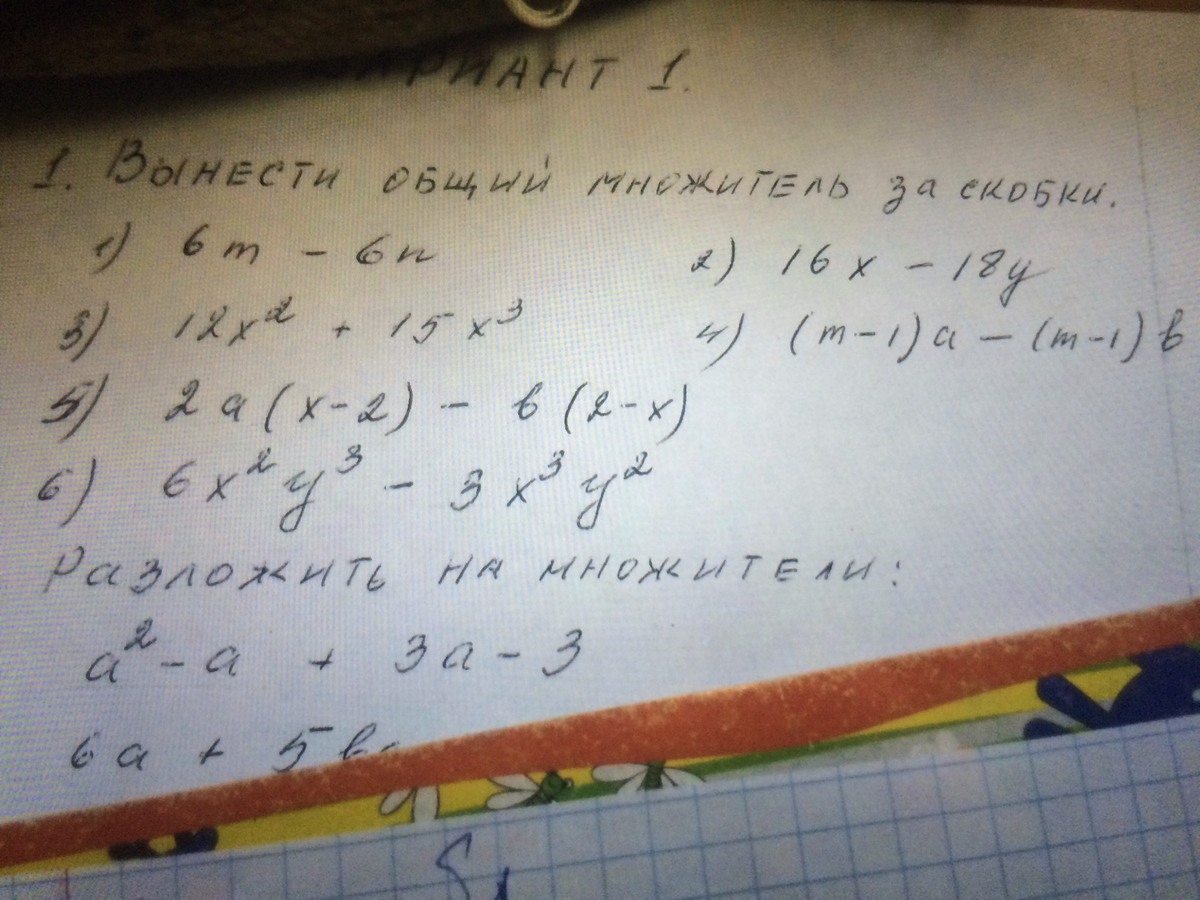 ВАРИАНТ 1.
1. Вынести общий множитель за скобки.
1) 6m - 6n 2) 16x - 18y
3) 12x² + 15x³ 4) (m-1)a - (m-1)в
5) 2a(x-2) - в(2-x)
6) 6x²y³ - 3x³y²
Разложить на множители:
a² - a + 3a - 3
6a + 5в